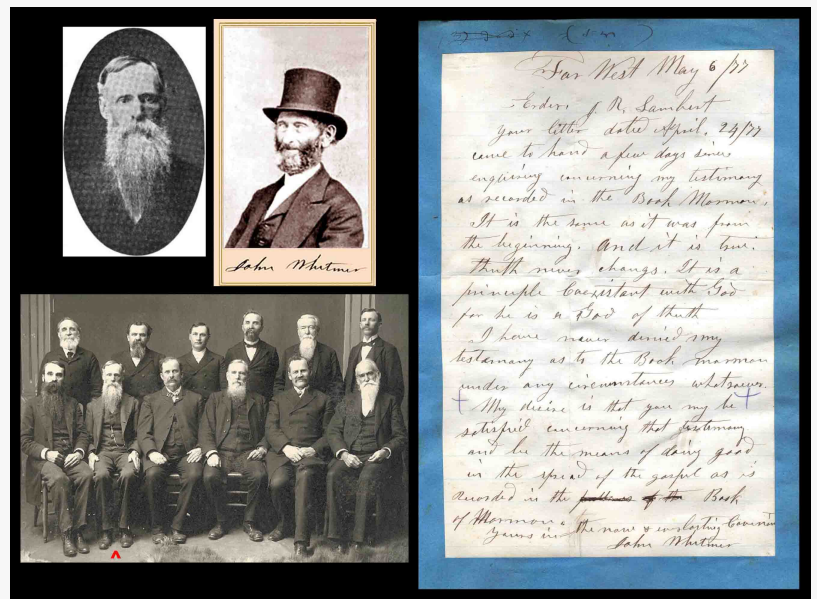 John Whitmer
Far West May 6/77
Erder. J. R. Lambert
your letter dated April, 24/77
came to hand a few days since
enquiring concerning my testimony
as recorded in the Book Mormon,
It is the same as it was from
the beginning. And it is true.
thuth never changs. It is a
principle Coexistant with God
for he is a God of thuth
I have never denied my
testamony as to the Book mormon
under any circumstances whatsoever.
My desire is that you my be
satisfied concerning that testimony
and be the means of doing good
in the spread of the gospel as is
recorded in the Book
of Mormon.
Yours in the new & everlasting Covenan
John Whitmer